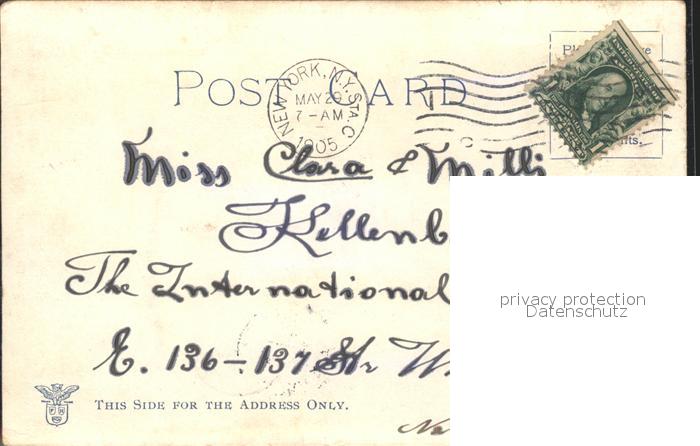 POST CARD
NEW YORK, N.Y. STA. C
MAY 26
7-AM
1905
Miss Clara & Milli
Kellenb
The International
E. 136-137 Str W
THIS SIDE FOR THE ADDRESS ONLY.
Ne
privacy protection
Datenschutz